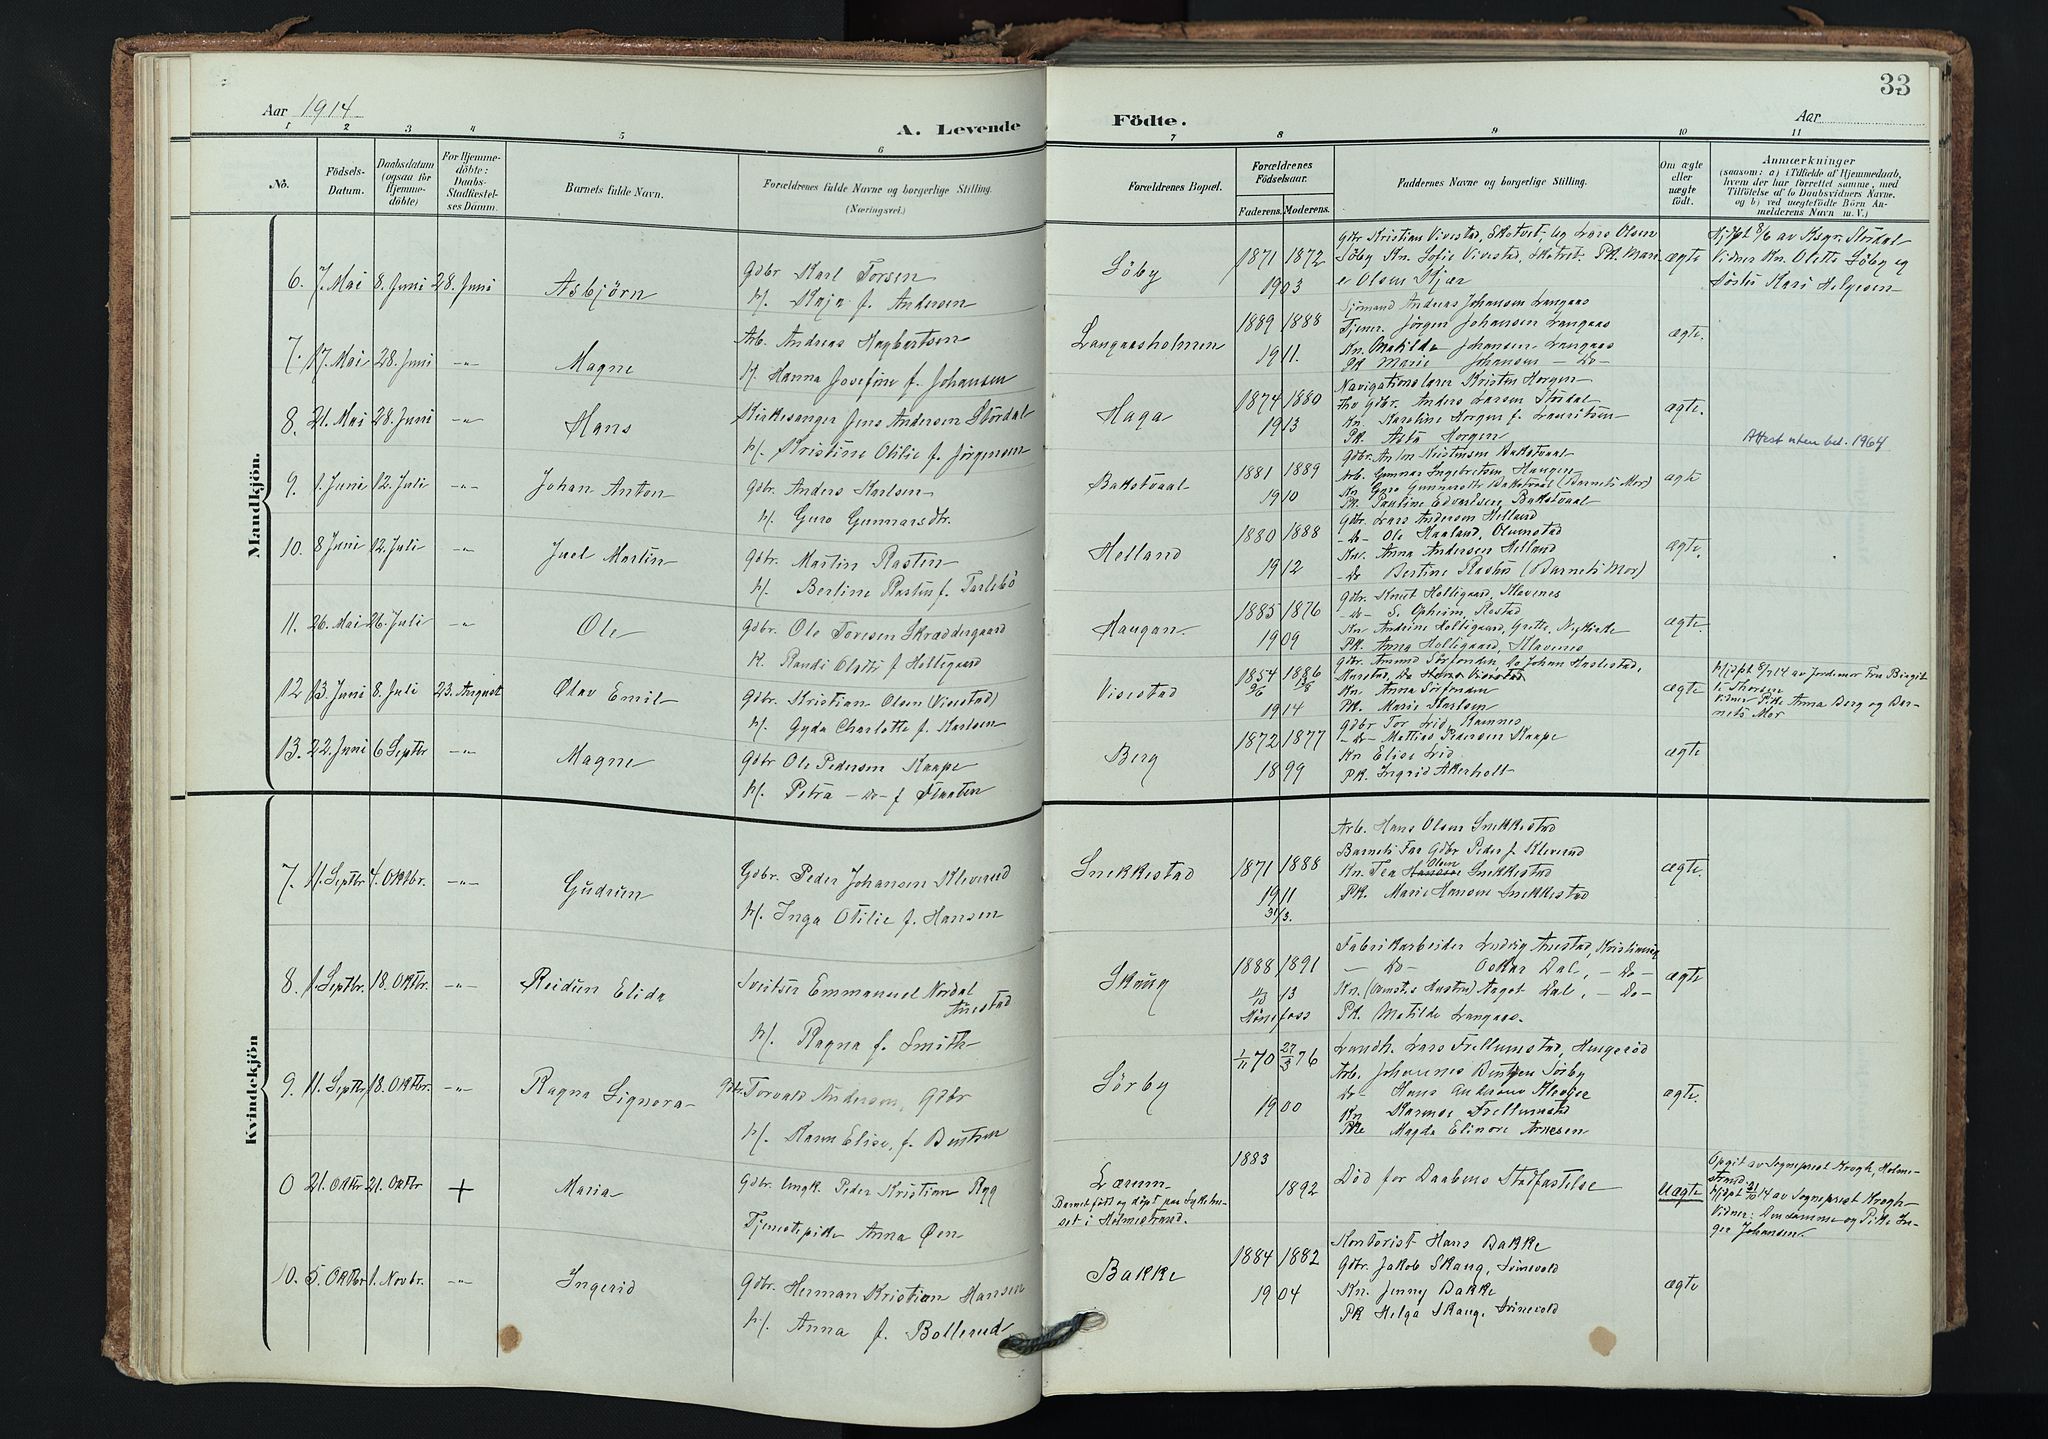 33
Aar 1914
A. Levende
Födte.
Aar
1 2 3 4 5 6 7 8 9 10 11
No.
Födsels-
Datum.
Daabsdatum
(ogsaa for
Hjemme-
döbte)
For Hjemme-
döbte:
Daabs-
Stadfæstel-
ses Datum.
Barnets fulde Navn.
Forældrenes fulde Navne og borgerlige Stilling.
(Næringsvei.)
Forældrenes Bopæl.
Forældrenes
Födselsaar.
Faderens. Moderens.
Faddernes Navne og borgerlige Stilling.
Om ægte
eller
uægte
födt.
Anmærkninger
(saasom: a) i Tilfælde af Hjemmedaab,
hvem der har forrettet samme, med
Tilföielse af to Daabsvidners Navne.
og b) ved uægtefödte Börn An-
melderens Navn m. V.)
Mandkjön.
6. 7. Mai 8. Juni 28. Juni Asbjörn
Gdbr Karl Torsen
H. Kaja f. Andersen
Söby
1871 1872
1903
Gdbr Kristian Vivestad, Skotvet, og Lars Olsen
Söby Kn. Sofie Vivestad, Skotvet. Pk. Mari
e Olsen Kjær
ægte
Hjdpt 8/6 av Ksgr. Stördal
Vidner Kn. Olette Söby og
Söster Kari Helgesen
7. 17. Mai 28. Juni -"- Magne
Arb. Andreas Hagbartsen
H. Hanna Josefine f. Johansen
Langaasholmen
1889 1888
1911.
Sjömand Andreas Johansen Langaas
Tjener. Jørgen Johansen Langaas
Kn. Matilde Johansen Langaas
Pk Marie Johansen - Do -
ægte.
8. 21. Mai 28. Juni -"- Hans
Kirkesanger Jens Andersen Stördal
H. Kristine Otilie f. Jörgensen
Haga
1874 1880
1913
Navigationslærer Kristen Horgen
Gdbr. Anders Larsen Stördal
Kn. Karoline Horgen f. Lauritsen
Pk. Asta Horgen
ægte.
Attest uten bet. 1964
9. 1. Juni 12. Juli -"- Johan Anton
Gdbr. Anders Karlsen
H. Guro Gunnarsdtr.
Bakstvaal
1881 1889
1910
Gdbr. Anton Kristensen Bakstvaal
Arb. Gunnar Ingebretsen Haugene
Kn Guro Gunnersdtr Bakstvaal (Barnets Mor)
Pk. Pauline Edvartsen Bakstvaal
ægte
10. 8 Juni 12. Juli -"- Juel Martin
Gdbr. Martin Rasten
H. Bertine Rasten f. Tarlebö
Helland
1880 1888
1912
Gdbr. Lars Andersen Helland
- Do - Ole Haaland, Olumstad
Kn. Anna Andersen Helland
- Do Bertine Rasten (Barnets Mor)
ægte.
11. 26. Mai 26. Juli -"- Ole
Gdbr. Ole Toresen Skræddergaard
H. Randi Olette f. Holtegaard
Haugan.
1885 1876
1909
Gdbr. Knut Holtegaard, Klavenes
- Do - S. Opheim, Rostad
Kn. Andrine Holtegaard, Grette, Nykirke
Pk. Anna Holtegaard, Klavenes
ægte.
12 13. Juni 8. Juli 23. August Olav Emil
Gdbr. Kristian Olsen (Vivestad)
H. Gyda Charlotte f. Karlsen
Vivestad
1854 1886
1914
Kn. Anna
Pk. Marie Karlsen
ægte
Hjdpt 8/7 14 av Jordemor Fru Birgit
Thorsen
Vidner Pike Anna Berg og Bar-
nets Mor
13. 22. Juni 6 Septbr -"- Magne
Gdbr Ole Pedersen Kaape
H. Petra - Do - f Flaaten
Berg
1872 1877
1899
Gdbr Tor Lid, Ramnes
- Do - Mathias Pedersen Kaape
Kn Elise Lid
Pk. Ingrid Akerholt
ægte
Kvindekjön
7. 11. Septbr 4. Oktbr. -"- Gudrun
Gdbr. Peder Johansen Kleverud
H. Inga Otilie f. Hansen
Snekkestad
1871 1888
1911
31/3.
Arb. Hans Olsen Snekkestad
Barnets Far Gdbr Peder J. Kleverud
Kn. Tea Olsen Snekkestad
Pk. Marie Hansen Snekkestad
ægte.
8. 1. Septbr. 18. Oktbr. -"- Reidun Elida
Sveitser Emmanuel Nordal
Anestad
H. Ragna f. Smith
Skaug
1888 1891
13
Hönefoss
Fabrikarbeider Ludvig Anestad, Kristiania
- Do - Oskar Dal, - Do -
Kn. Aagot Dal, - Do -
Pk. Matilde Langaas.
ægte
9. 11. Septbr. 18. Oktbr. -"- Ragna Signora
Gdbr. Torvald Andersen, Gdbr
H. Karen Elise, f. Bentsen
Sörby
1/11 70 27/3 76
1900
Landh. Lars Frellumstad, Haugeröd
Arb. Johannes Bentsen Sörby
Do - Hans Andersen
Kn Karense Frellumstad
Pke Magda Elinore Arnesen
ægte.
0 21. Oktbr 21. Oktbr + Maria
Gdbr. Ungk. Peder Kristian Rygg
Tjenestepike Anna Øen
Lærum
Barnet födt og döpt paa Sykehu-
set i Holmestrand.
1883
1892
Död for Daabens Stadfæstelse
Uægte
Opgit av Sogneprest Krogh, Holme-
strand.
Hjdpt 21/10 14 av Sogneprest Krogh
Vidner: Den samme og Pike In-
ger Johansen.
10. 5. Oktbr 1. Novbr. -"- Ingerid
Gdbr. Herman Kristian Hansen
H. Anna f. Bollerud
Bakke
1884 1882
1904
Kontorist Hans Bakke
Gdbr. Jakob Skaug, Svinevold
Kn. Jenny Bakke
Pk Helga Skaug, Svinevold
ægte